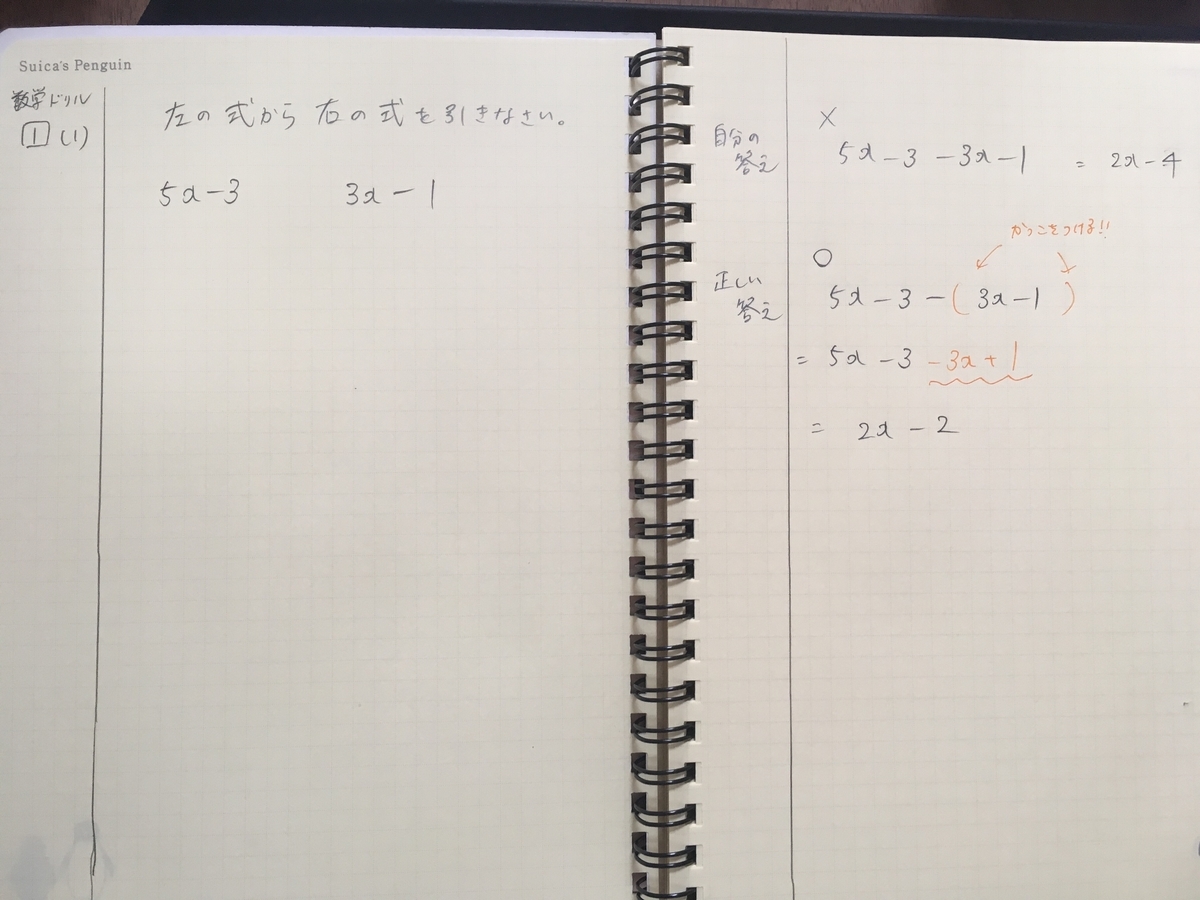 Suica's Penguin
数学ドリル
1 (1)
左の式から右の式を引きなさい。
5x-3 3x-1
自分の
答え
×
5x-3-3x-1 = 2x-4
かっこをつける!!
正しい
答え
○
5x-3-(3x-1)
= 5x-3-3x+1
= 2x-2